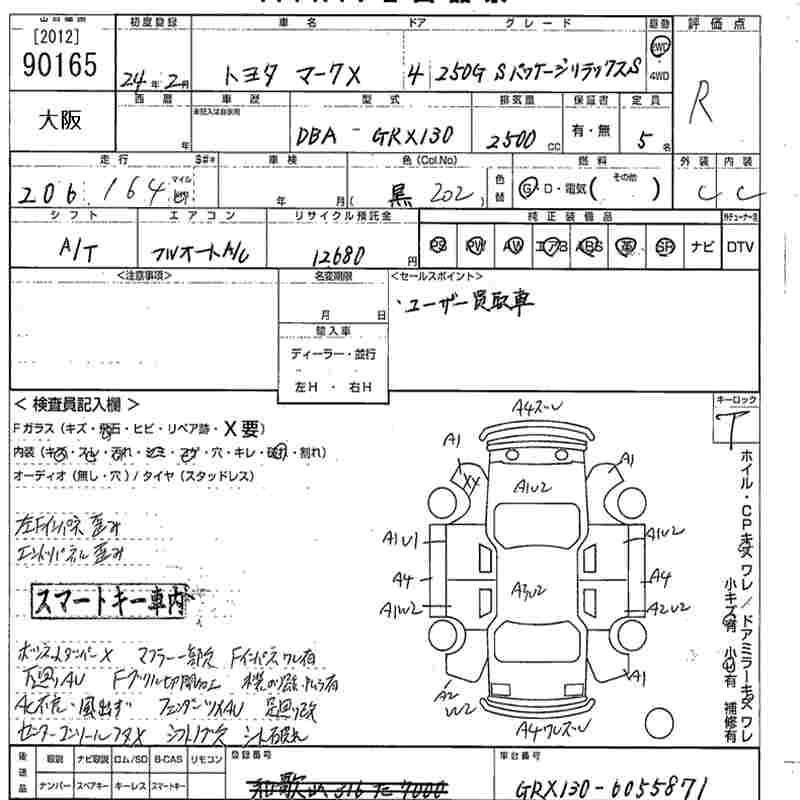 [2012]
90165
初度登録
車名
ドア
グレード
駆動
評価点
24年2月
トヨタ マークX
4
250G Sパッケージリラックス S
2WD
4WD
R
大阪
西暦
車歴
型式
排気量
保証書
定員
年
未記入は自家用
DBA - GRX130
2500 CC
有・無
5名
走行
S#*
車検
色(Col.No)
燃料
外装
内装
206,164
マイル
年
月
(黒 202)
色替
G・D・電気(その他)
C
C
シフト
エアコン
リサイクル預託金
純正装備品
A/T
フルオートA/C
12680円
PS
PW
AW
エアB
ABS
革
SR
ナビ
DTV
<注意事項>
名変期限
<セールスポイント>
月
日
・ユーザー買取車
輸入車
ディーラー・並行
左H・右H
<検査員記入欄>
キーロック
Fガラス(キズ・飛石・ヒビ・リペア跡・X要)
T
内装(キズ・スレ・汚れ・シミ・コゲ・穴・キレ・破れ・割れ)
オーディオ(無し・穴)/タイヤ(スタッドレス)
左Fインパネ歪み
エンドパネル歪み
スマートキー車内
ボンネットダンパーX マフラー一部欠 Fインパネワレ有
下廻りAU Fグリル切開加工
A/C不良・風出ず
足廻り改
A4ズレ
A1
A1
XX
A1U2
A1U1
A1U2
A4
A3U2
A4
A1U2
A2U2
A2
U2
A1
A4ワレズレ
ホイル・CPキズ ワレ/ドアミラーキズ ワレ
小キズ有 小凹有 補修有
後送品
取説
ナビ取説
ロム/SD
B-CAS
リモコン
ナンバー
スペアキー
キーレス
スマートキー
登録番号
和歌山 316 た 7000
車台番号
GRX130-6055871